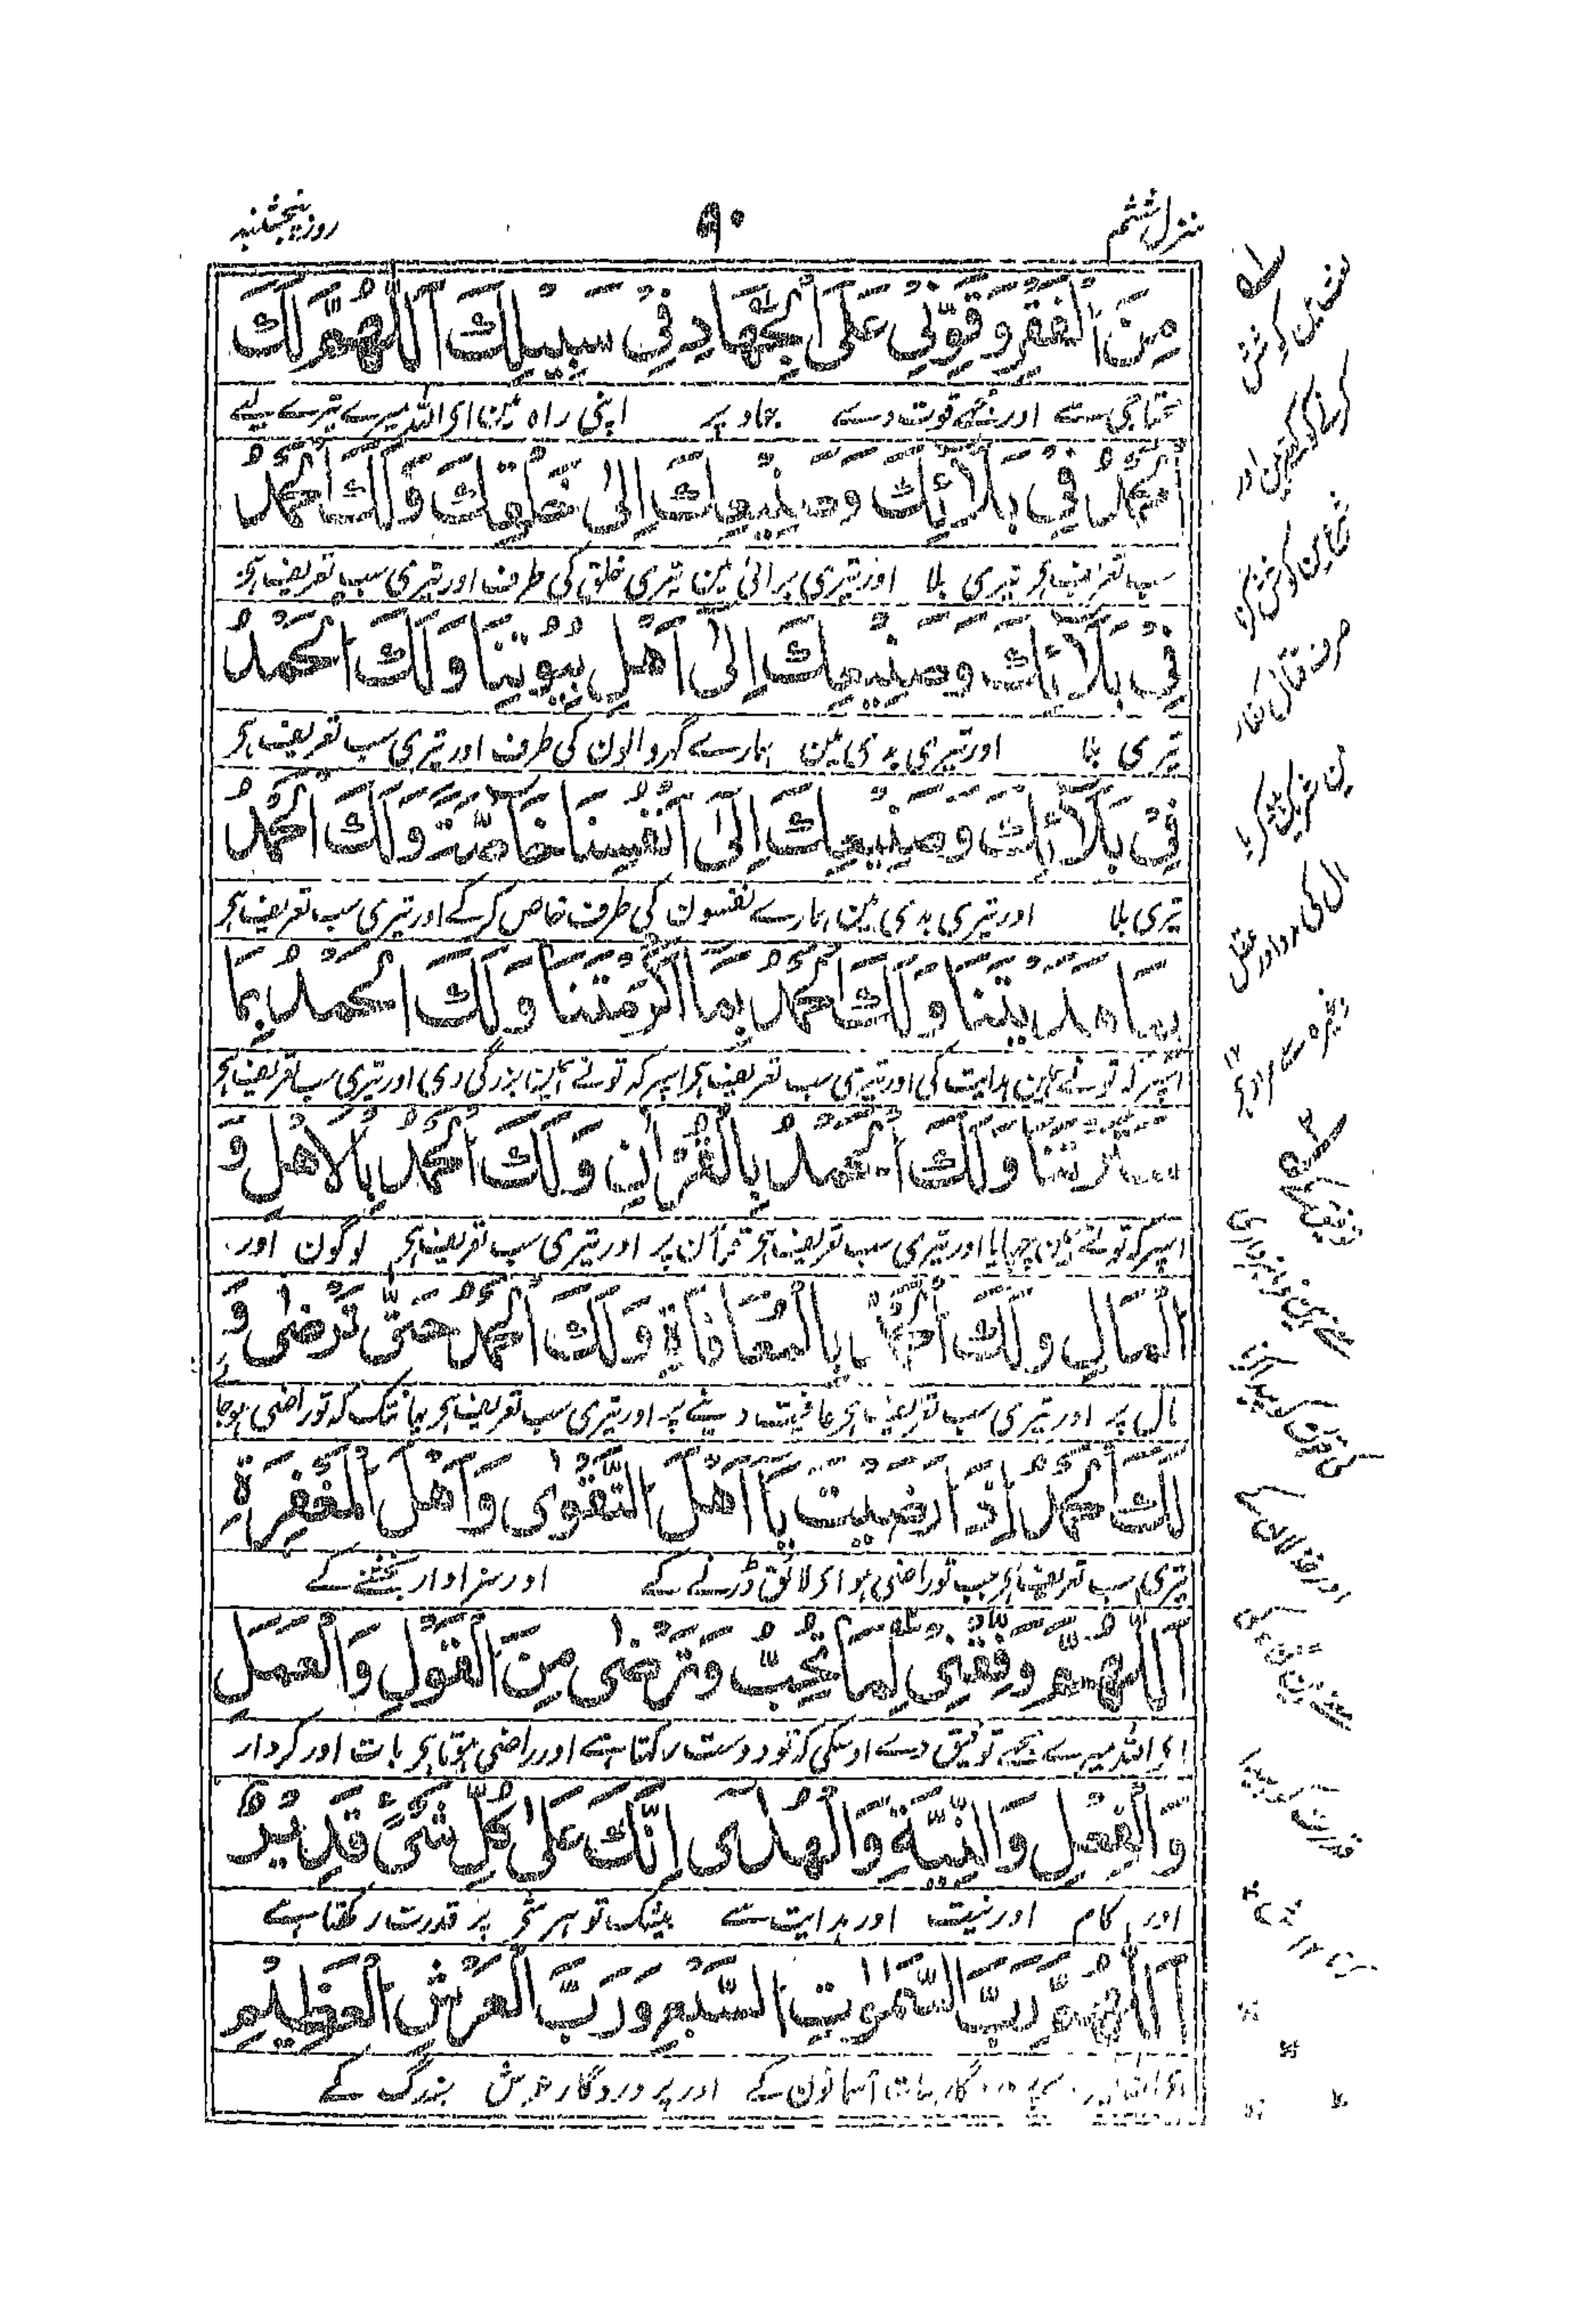 منزل ششم
۹۰
روز پنجشنبہ
مِنَ الْفَقْرِ وَقَوِّنِيْ عَلَى الْجِهَادِ فِيْ سَبِيْلِكَ اَللّٰهُمَّ لَكَ
محتاجی سے اور مجھے قوت دے جہاد پر اپنی راہ مین ای اللہ میرے تیرے لیے
الْحَمْدُ فِيْ بَلَآئِكَ وَصَنِيْعِكَ اِلٰى خَلْقِكَ وَلَكَ الْحَمْدُ
سب تعریف ہی تیری بلا اور تیری برائی مین تیری خلق کی طرف اور تیری سب تعریف ہی
فِيْ بَلَآئِكَ وَصَنِيْعِكَ اِلٰى اَهْلِ بُيُوْتِنَا وَلَكَ الْحَمْدُ
تیری بلا اور تیری بدی مین ہمارے گہر والون کی طرف اور تیری سب تعریف ہی
فِيْ بَلَآئِكَ وَصَنِيْعِكَ اِلٰى اَنْفُسِنَا خَاصَّةً وَلَكَ الْحَمْدُ
تیری بلا اور تیری بدی مین ہمارے نفسون کی طرف خاص کرکے اور تیری سب تعریف ہی
بِمَا هَدَيْتَنَا وَلَكَ الْحَمْدُ بِمَا اَكْرَمْتَنَا وَلَكَ الْحَمْدُ بِمَا
اسپر کہ تو نے ہمین ہدایت کی اور تیری سب تعریف ہی اسپر کہ تو نے ہمین بزرگی دی اور تیری سب تعریف ہی
سَتَرْتَنَا وَلَكَ الْحَمْدُ بِالْقُرْاٰنِ وَلَكَ الْحَمْدُ بِالْاَهْلِ وَ
اسپر کہ تو نے ہمین چہپایا اور تیری سب تعریف ہی قرآن پر اور تیری سب تعریف ہی لوگون اور
الْمَالِ وَلَكَ الْحَمْدُ بِالْمُعَافَاةِ وَلَكَ الْحَمْدُ حَتّٰى تَرْضٰى وَ
مال پر اور تیری سب تعریف ہی عافیت دینے پر اور تیری سب تعریف ہی یہانتک کہ تو راضی ہو جائے
لَكَ الْحَمْدُ اِذَا رَضِيْتَ يَا اَهْلَ التَّقْوٰى وَاَهْلَ الْمَغْفِرَةِ
تیری سب تعریف ہی جب تو راضی ہو ای لائق ڈرنے کے اور سزاوار بخشنے کے
اَللّٰهُمَّ وَفِّقْنِيْ لِمَا تُحِبُّ وَتَرْضٰى مِنَ الْقَوْلِ وَالْعَمَلِ
ای اللہ میرے مجھے توفیق دے اوسکی کہ تو دوست رکھتا ہے اور راضی ہوتا ہی بات اور کردار
وَالْفِعْلِ وَالنِّيَّةِ وَالْهُدٰى اِنَّكَ عَلٰى كُلِّ شَيْءٍ قَدِيْرٌ
اور کام اور نیت اور ہدایت سے بیشک تو ہر شی پر قدرت رکھتا ہے
اَللّٰهُمَّ رَبَّ السَّمٰوٰتِ السَّبْعِ وَرَبَّ الْعَرْشِ الْعَظِيْمِ
ای اللہ پروردگار سات آسمانون کے اور پروردگار عرش بزرگ کے